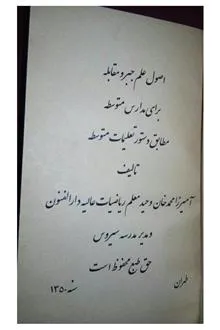 اصول علم جبر و مقابله
برای مدارس متوسطه
مطابق دستور تعلیمات متوسطه
تألیف
آمیرزا محمد خان وحید معلم ریاضیات عالیه دارالفنون
و مدیر مدرسه سیروس
حق طبع محفوظ است
طهران سنه ۱۳۵۰